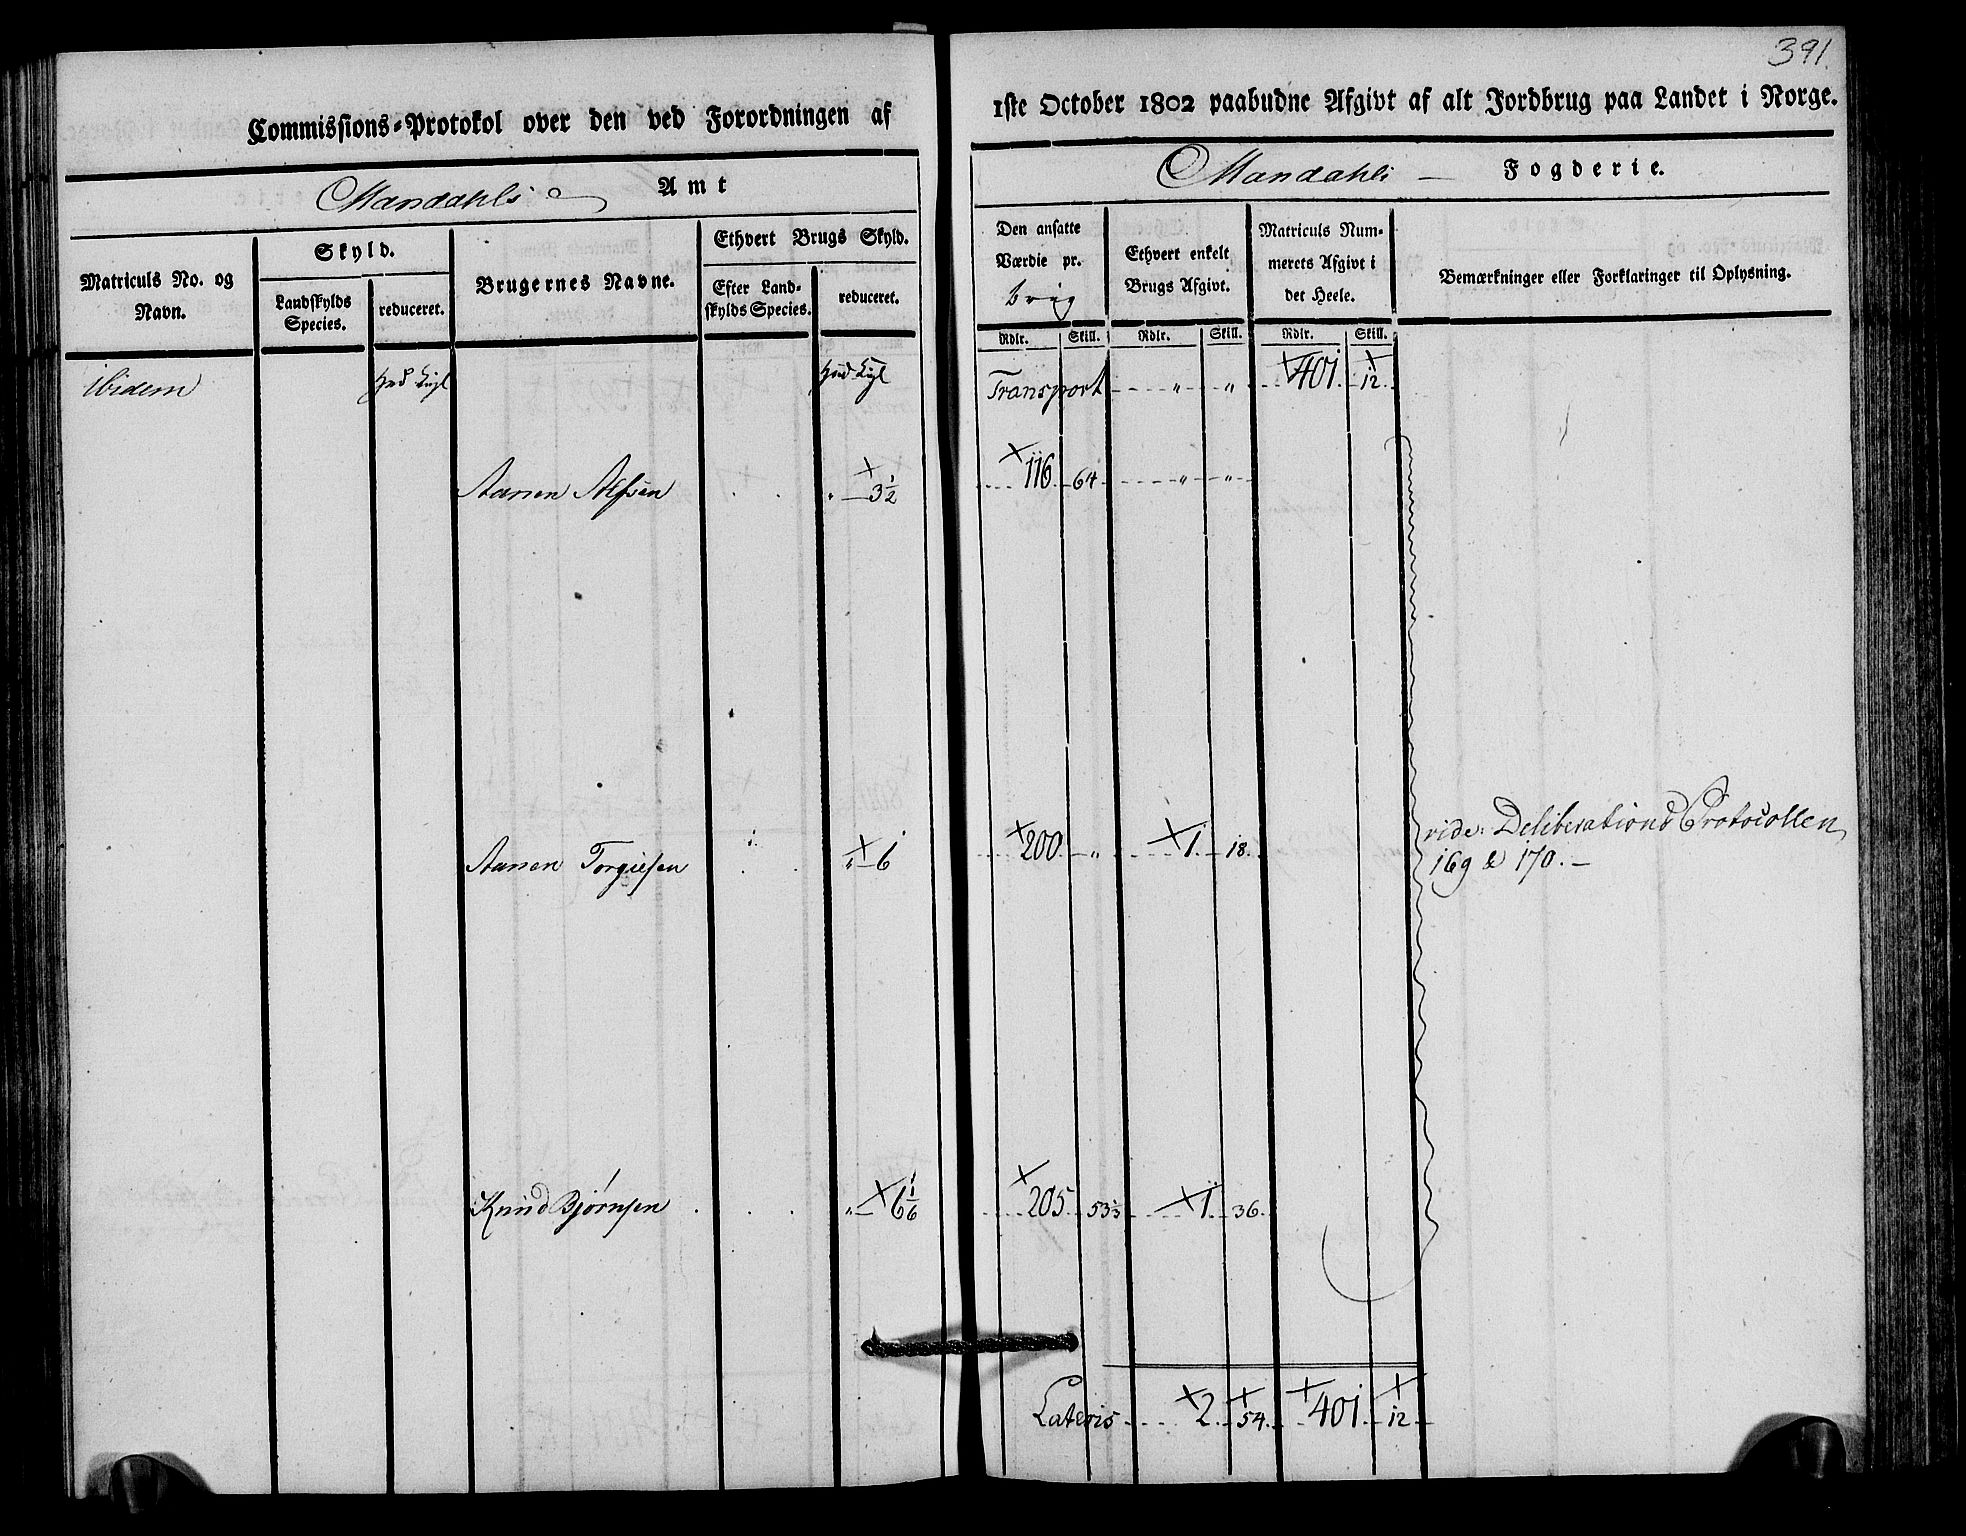 391.
Commissions-Protokol over den ved Forordningen af 1ste October 1802 paabudne Afgivt af alt Jordbrug paa Landet i Norge.
Mandahls Amt
Mandahls — Fogderie.
Matriculs No. og Navn.
Skyld.
Landskylds Species.
reduceret.
Brugernes Navne.
Ethvert Brugs Skyld.
Efter Landskylds Species.
reduceret.
Den ansatte Værdie pr. brug
Ethvert enkelt Brugs Afgivt.
Matriculs Nummerets Afgivt i det Heele.
Bemærkninger eller Forklaringer til Oplysning.
Rdlr. Skill. Rdlr. Skill. Rdlr. Skill.
ibidem Hud Hud Transport " " 401 12
Aanen Alfsen " 3 1/2 116 64 " "
Aanen Torgiesen " 6 200 " 1 18
vide: Deliberations Protocollen
169 & 170. —
Knud Bjørnsen " 6 1/6 205 53 1/3 1 36
Lateris 2 54 401 12